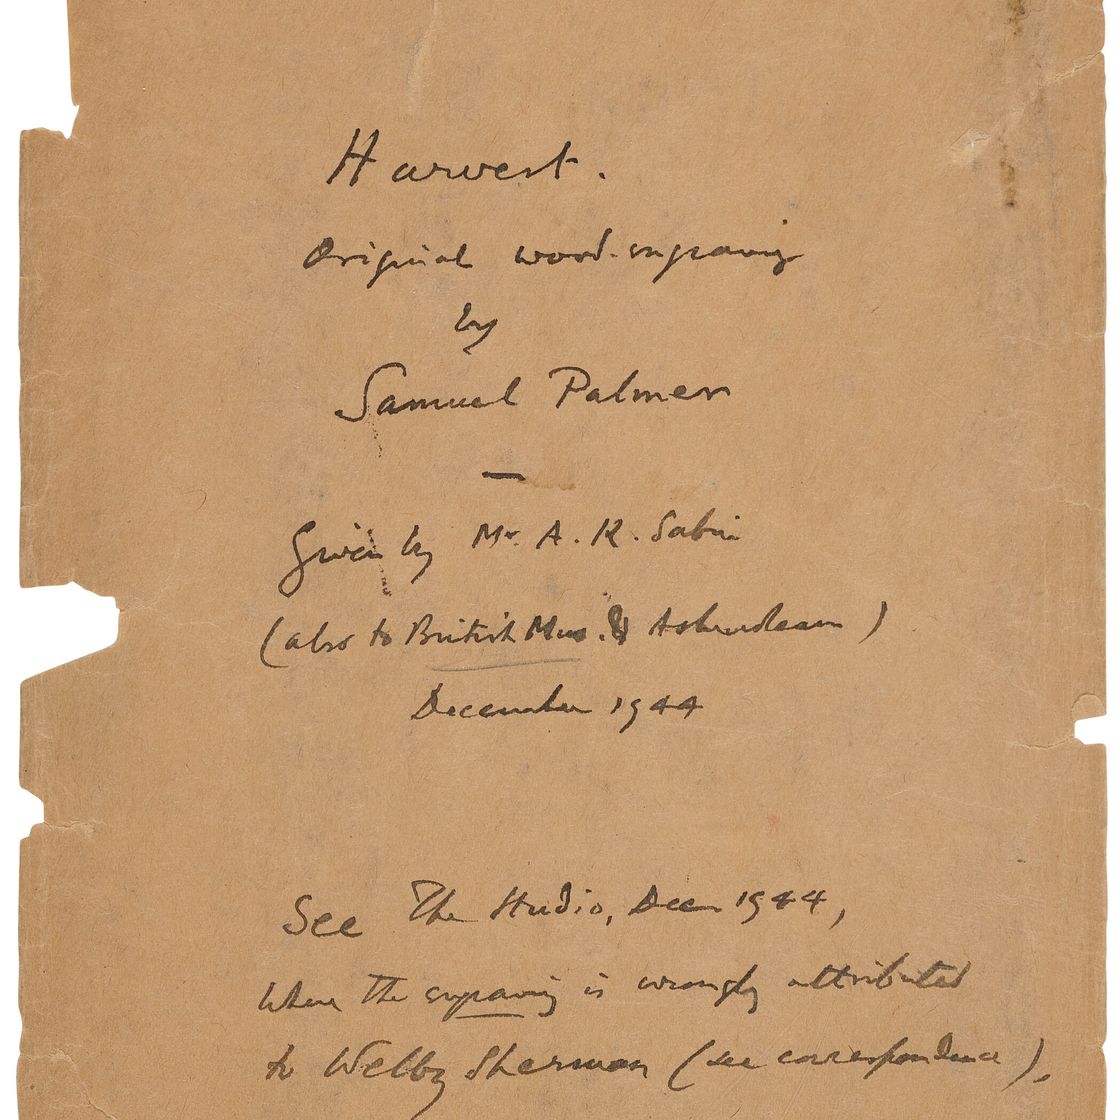 Harvest.
Original wood-engraving
by
Samuel Palmer
—
Given by Mr. A. K. Sabin
(also to British Mus. & Ashmolean)
December 1944
See The Studio, Dec 1944,
where the engraving is wrongly attributed
to Welby Sherman (see correspondence).